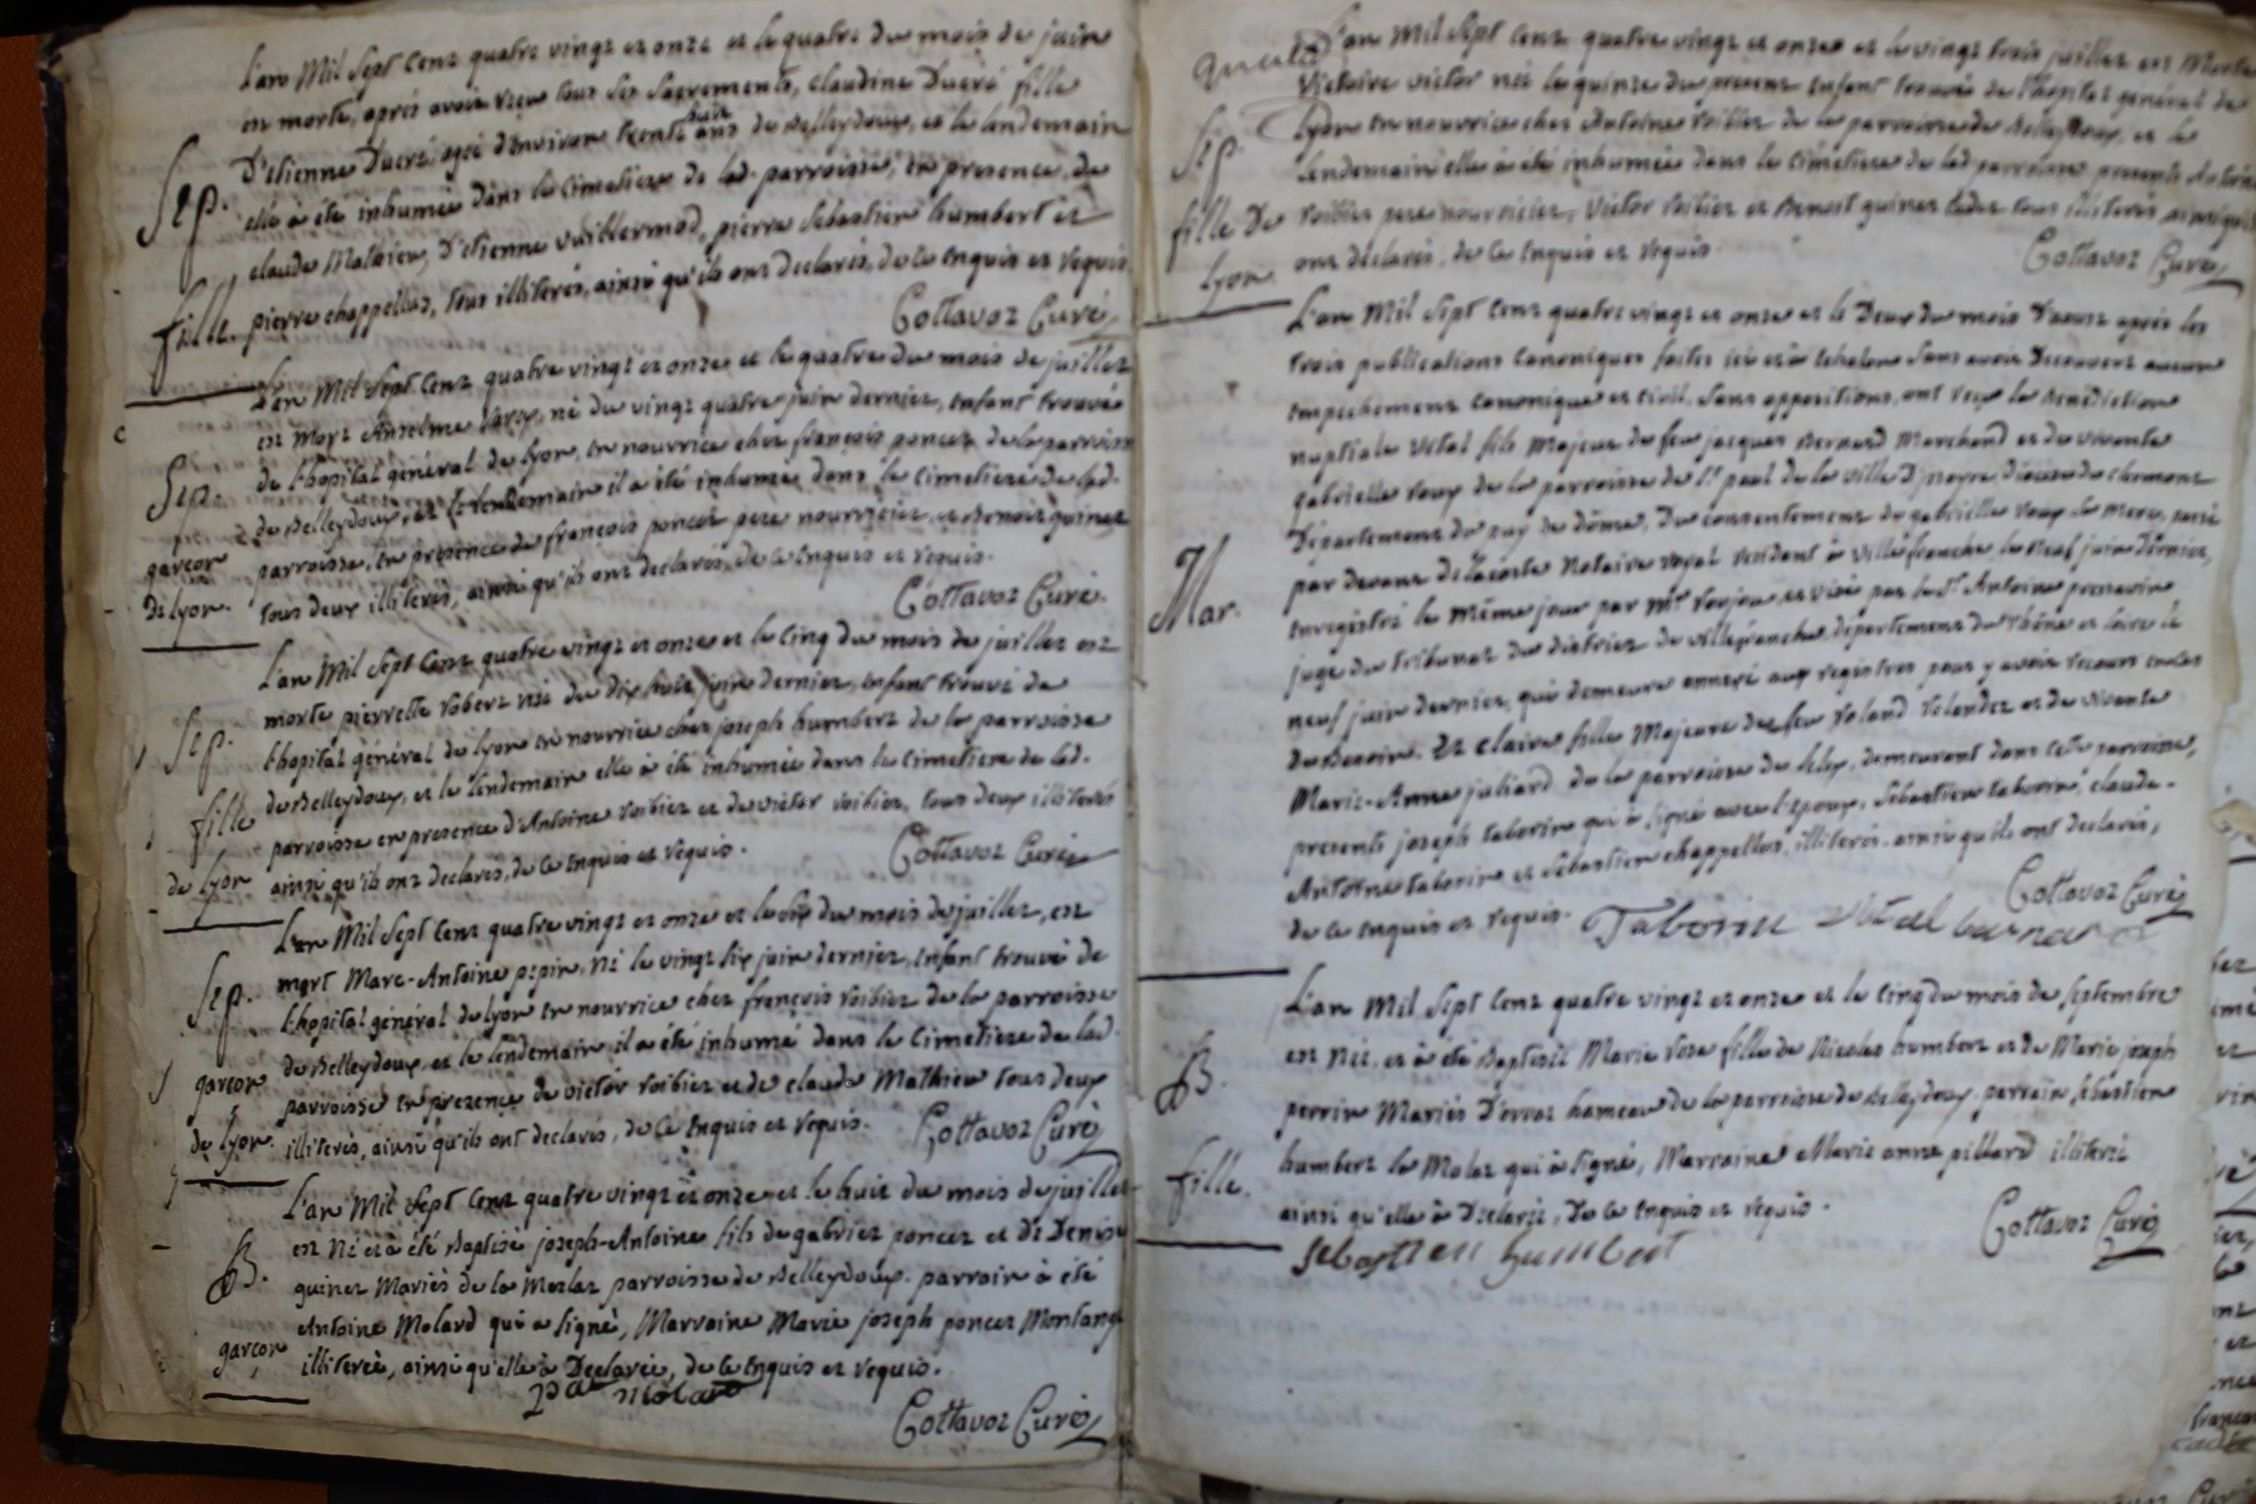 L'an Mil Sept Cent quatre vingt et onze et le quatre du mois de juin
est morte, après avoir reçu tous ses Sacrements, claudine Ducré fille
D'etienne Ducré, agée d'environ trente huit ans de Belleydoux, et le lendemain
elle à été inhumée dans le Cimetiere de lad. parroisse, en presence de
claude Mathieu, D'etienne vuillermod, pierre Sebastien humbert et
pierre chappelluz, tous illiterés, ainsi qu'ils ont declarés, de ce enquis et requis
Sep.
fille.
Cottavoz Curé
L'an Mil Sept Cent quatre vingt et onze et le quatre du mois de juillet
est mort Anselme né du vingt quatre juin dernier, enfant trouvé
de l'hopital général de Lyon, en nourrice chez françois poncet de la parroisse
de Belleydoux, et le lendemain il a été inhumé dans le cimetiere de lad.
parroisse, en presence de françois poncet pere nourricier, et Benoit guinet
tous deux illiterés, ainsi qu'ils ont declarés, de ce enquis et requis.
Sep.
garçon
de Lyon.
Cottavoz Curé.
L'an Mil Sept Cent quatre vingt et onze et le cinq du mois de juillet est
morte pierrette robert née du dix huit juin dernier, enfant trouvé de
l'hopital général de Lyon en nourrice chez joseph humbert de la parroisse
de Belleydoux, et le lendemain elle à été inhumée dans le cimetiere de lad.
parroisse en presence d'Antoine roibier et de victor roibier, tous deux illiterés
ainsi qu'ils ont declarés, de ce enquis et requis.
Sep.
fille
de Lyon
Cottavoz Curé
L'an Mil Sept Cent quatre vingt et onze et le six du mois de juillet, est
mort Marc-Antoine pepin, né le vingt six juin dernier, enfant trouvé de
l'hopital général de Lyon en nourrice chez françois roibier de la parroisse
de Belleydoux, et le lendemain il a été inhumé dans le Cimetiere de lad.
parroisse en presence de victor roibier et de claude Mathieu tous deux
illiterés, ainsi qu'ils ont declarés, de ce enquis et requis.
Sep.
garçon
de Lyon.
Cottavoz Curé
L'an Mil Sept Cent quatre vingt et onze et le huit du mois de juillet
est Né et à été Baptisé joseph-Antoine fils de gabriel poncet et de Denise
guinet Mariés de la parroisse de Belleydoux. parrain à été
Antoine Molard qui a signé, Marraine Marie joseph poncet Montange
illiterée, ainsi qu'elle à Declarée, de ce enquis et requis.
B.
garçon
molard
Cottavoz Curé
L'an Mil Sept Cent quatre vingt et onze et le vingt trois juillet est Morte
Victoire victor née le quinze du present enfant trouvé de l'hopital général de
Lyon en nourrice chez Antoine roibier de la parroisse de Belleydoux, et le
lendemain elle à été inhumée dans le Cimetiere de lad parroisse presents Antoine
roibier pere nourricier, victor roibier et Benoit guinet tous illiterés ainsi qu'ils
ont declarés, de ce enquis et requis.
Sep.
fille de
Lyon
Cottavoz Curé
L'an Mil Sept Cent quatre vingt et onze et le Deux du mois D'aoust après les
trois publications Canoniques faites ici et à Echalon sans avoir Decouvert aucun
empechement canonique et civil, sans oppositions, ont reçu la Benediction
nuptiale vital fils Majeur de feu jacques Bernard Marchand et de vivante
gabrielle roux de la parroisse de St. paul de la ville diocese de clermont
Département du puy de dôme, Du consentement de gabrielle roux la mere, passé
par devant Delacoste Notaire royal residant à villefranche le neuf juin dernier,
enregistré le même jour par et visé par le Sr. Antoine
juge du tribunal du district de villefranche département du rhône et loire le
neuf juin dernier, qui demeure annexé aux registres pour y avoir recours en cas
de Besoin. Et claire fille Majeure de feu roland et de vivante
Marie-Anne juliard de la parroisse de demeurant dans cette parroisse,
presents joseph taborin qui à signé avec l'Epoux, Sébastien taborin, claude-
Antoine taborin et Sébastien chappelluz, illiterés, ainsi qu'ils ont declarés,
de ce enquis et requis.
Mar.
Cottavoz Curé
Taborin vital bernard
L'an Mil Sept Cent quatre vingt et onze et le Cinq du mois de Septembre
est Née, et à été Baptisée Marie rose fille de Nicolas humbert et de Marie joseph
perrin Mariés D'orvaz hameau de la parroisse de Belleydoux, parrain Sébastien
humbert qui à signé, Marraine Marie anne pillard illiterée
ainsi qu'elle à Declaré, de ce enquis et requis.
B.
fille.
Cottavoz Curé
Sebastien humbert